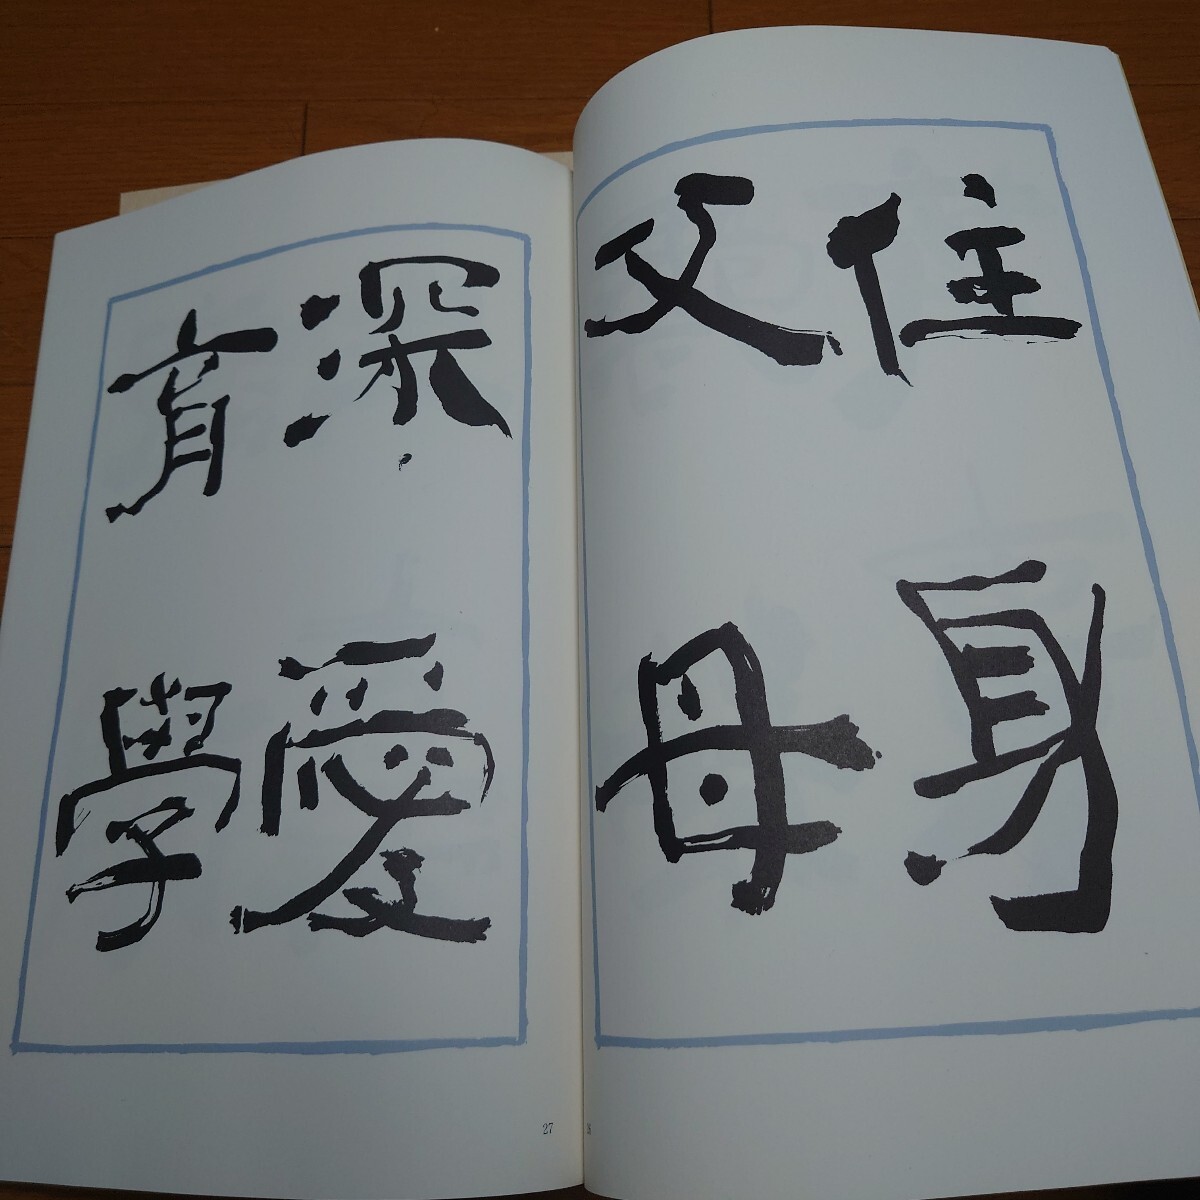 住身
父母
深愛
育學
27